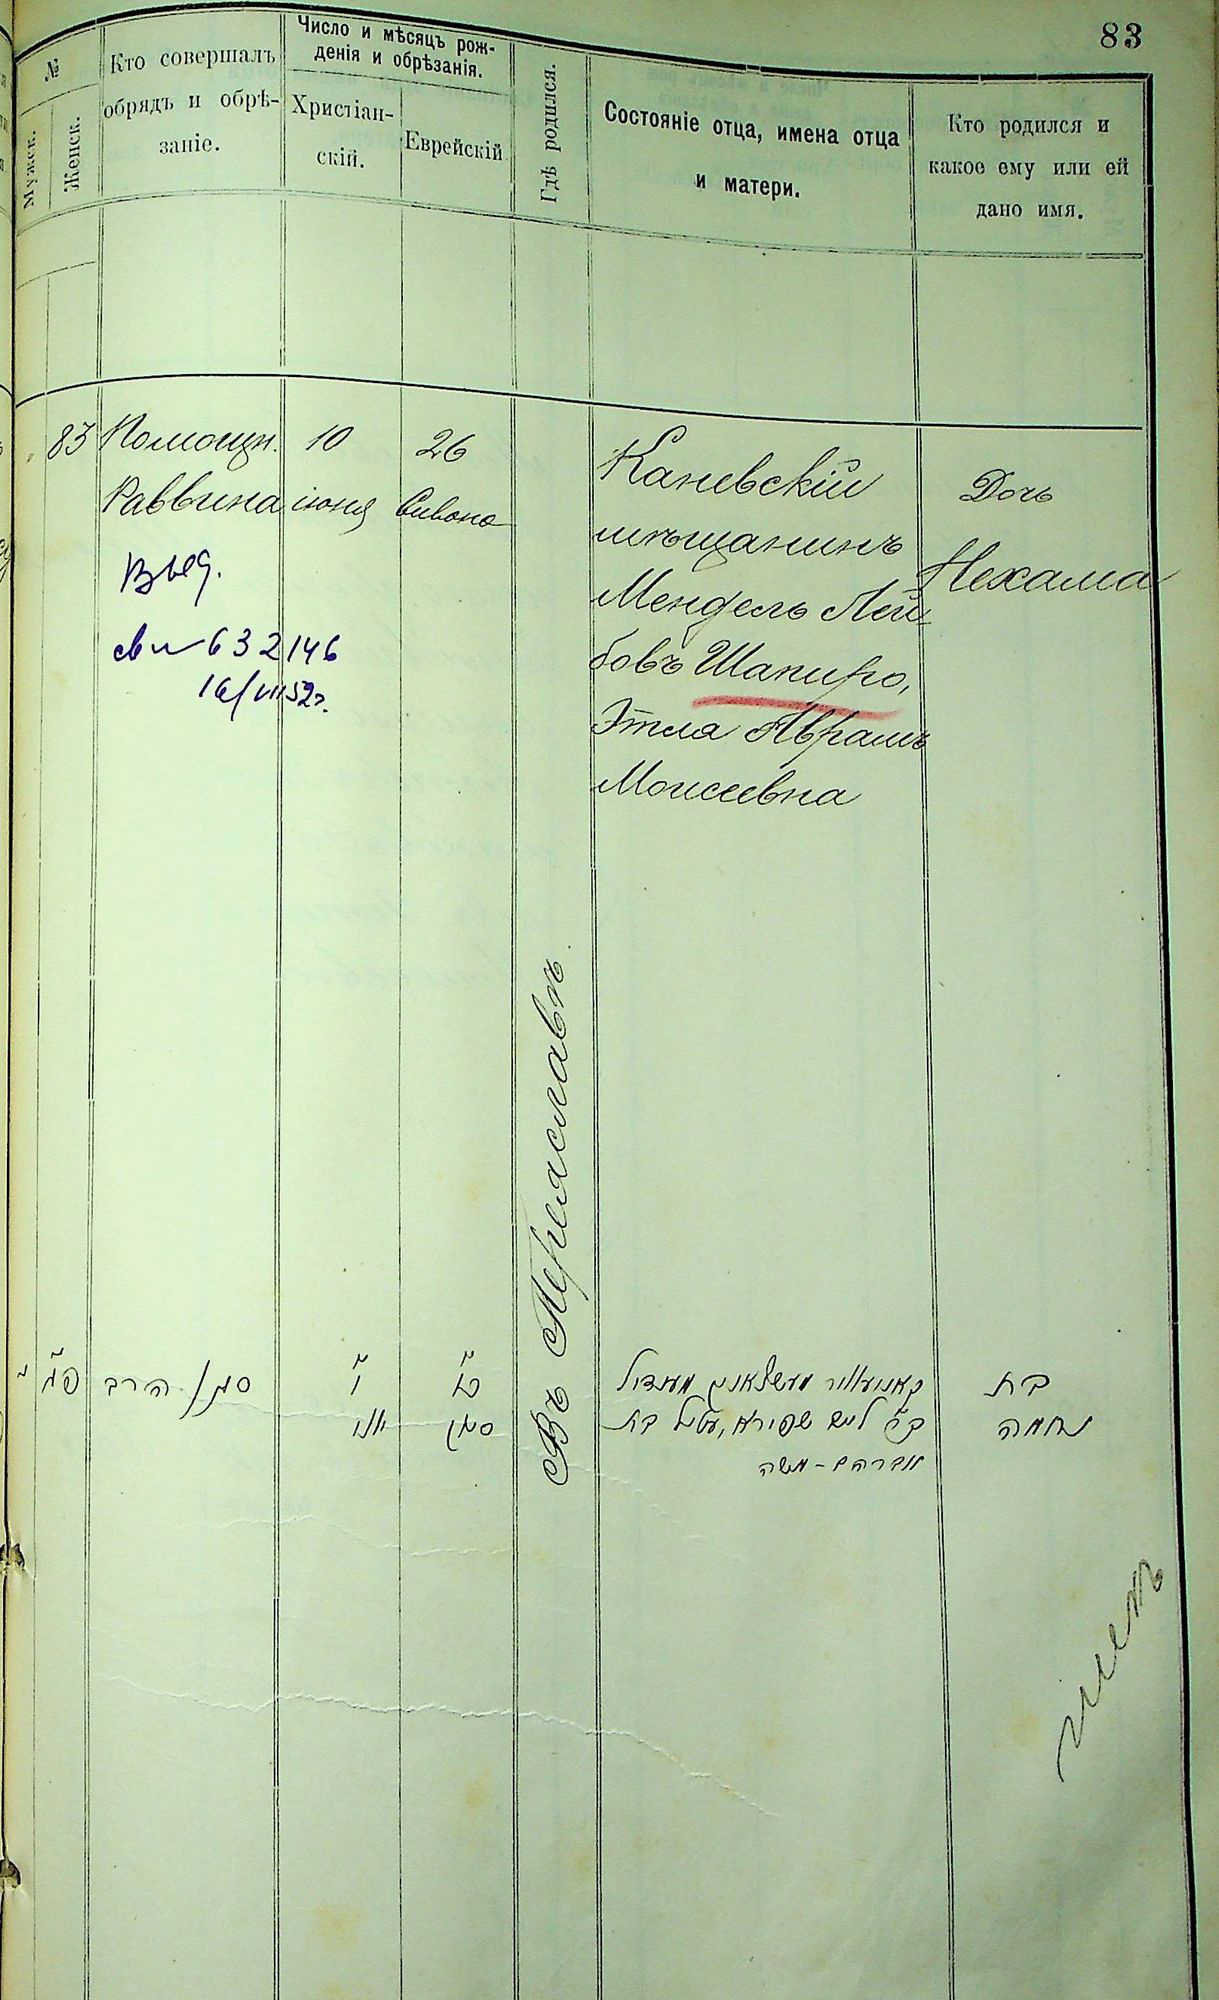 83
№
Мужск.
Женск.
Кто совершалъ
обрядъ и обрѣ-
заніе.
Число и мѣсяцъ рож-
денія и обрѣзанія.
Христіан-
скій.
Еврейскій
Гдѣ родился.
Состояніе отца, имена отца
и матери.
Кто родился и
какое ему или ей
дано имя.
83
Помощн.
Раввина
Выд.
св 632146
16/VII 52г.
10
іюня
26
Сивона
Въ Переяславѣ.
Каневскій
мѣщанинъ
Мендель Лей-
бовъ Шапиро,
Этля Аврамъ
Моисеевна
Дочь
Нехама
פג
סגן הרב
י
יוני
כו
סיון
מענדיל
ב״ר לייב שפירא, עטיל בת
אברהם-משה
בת
נחמה